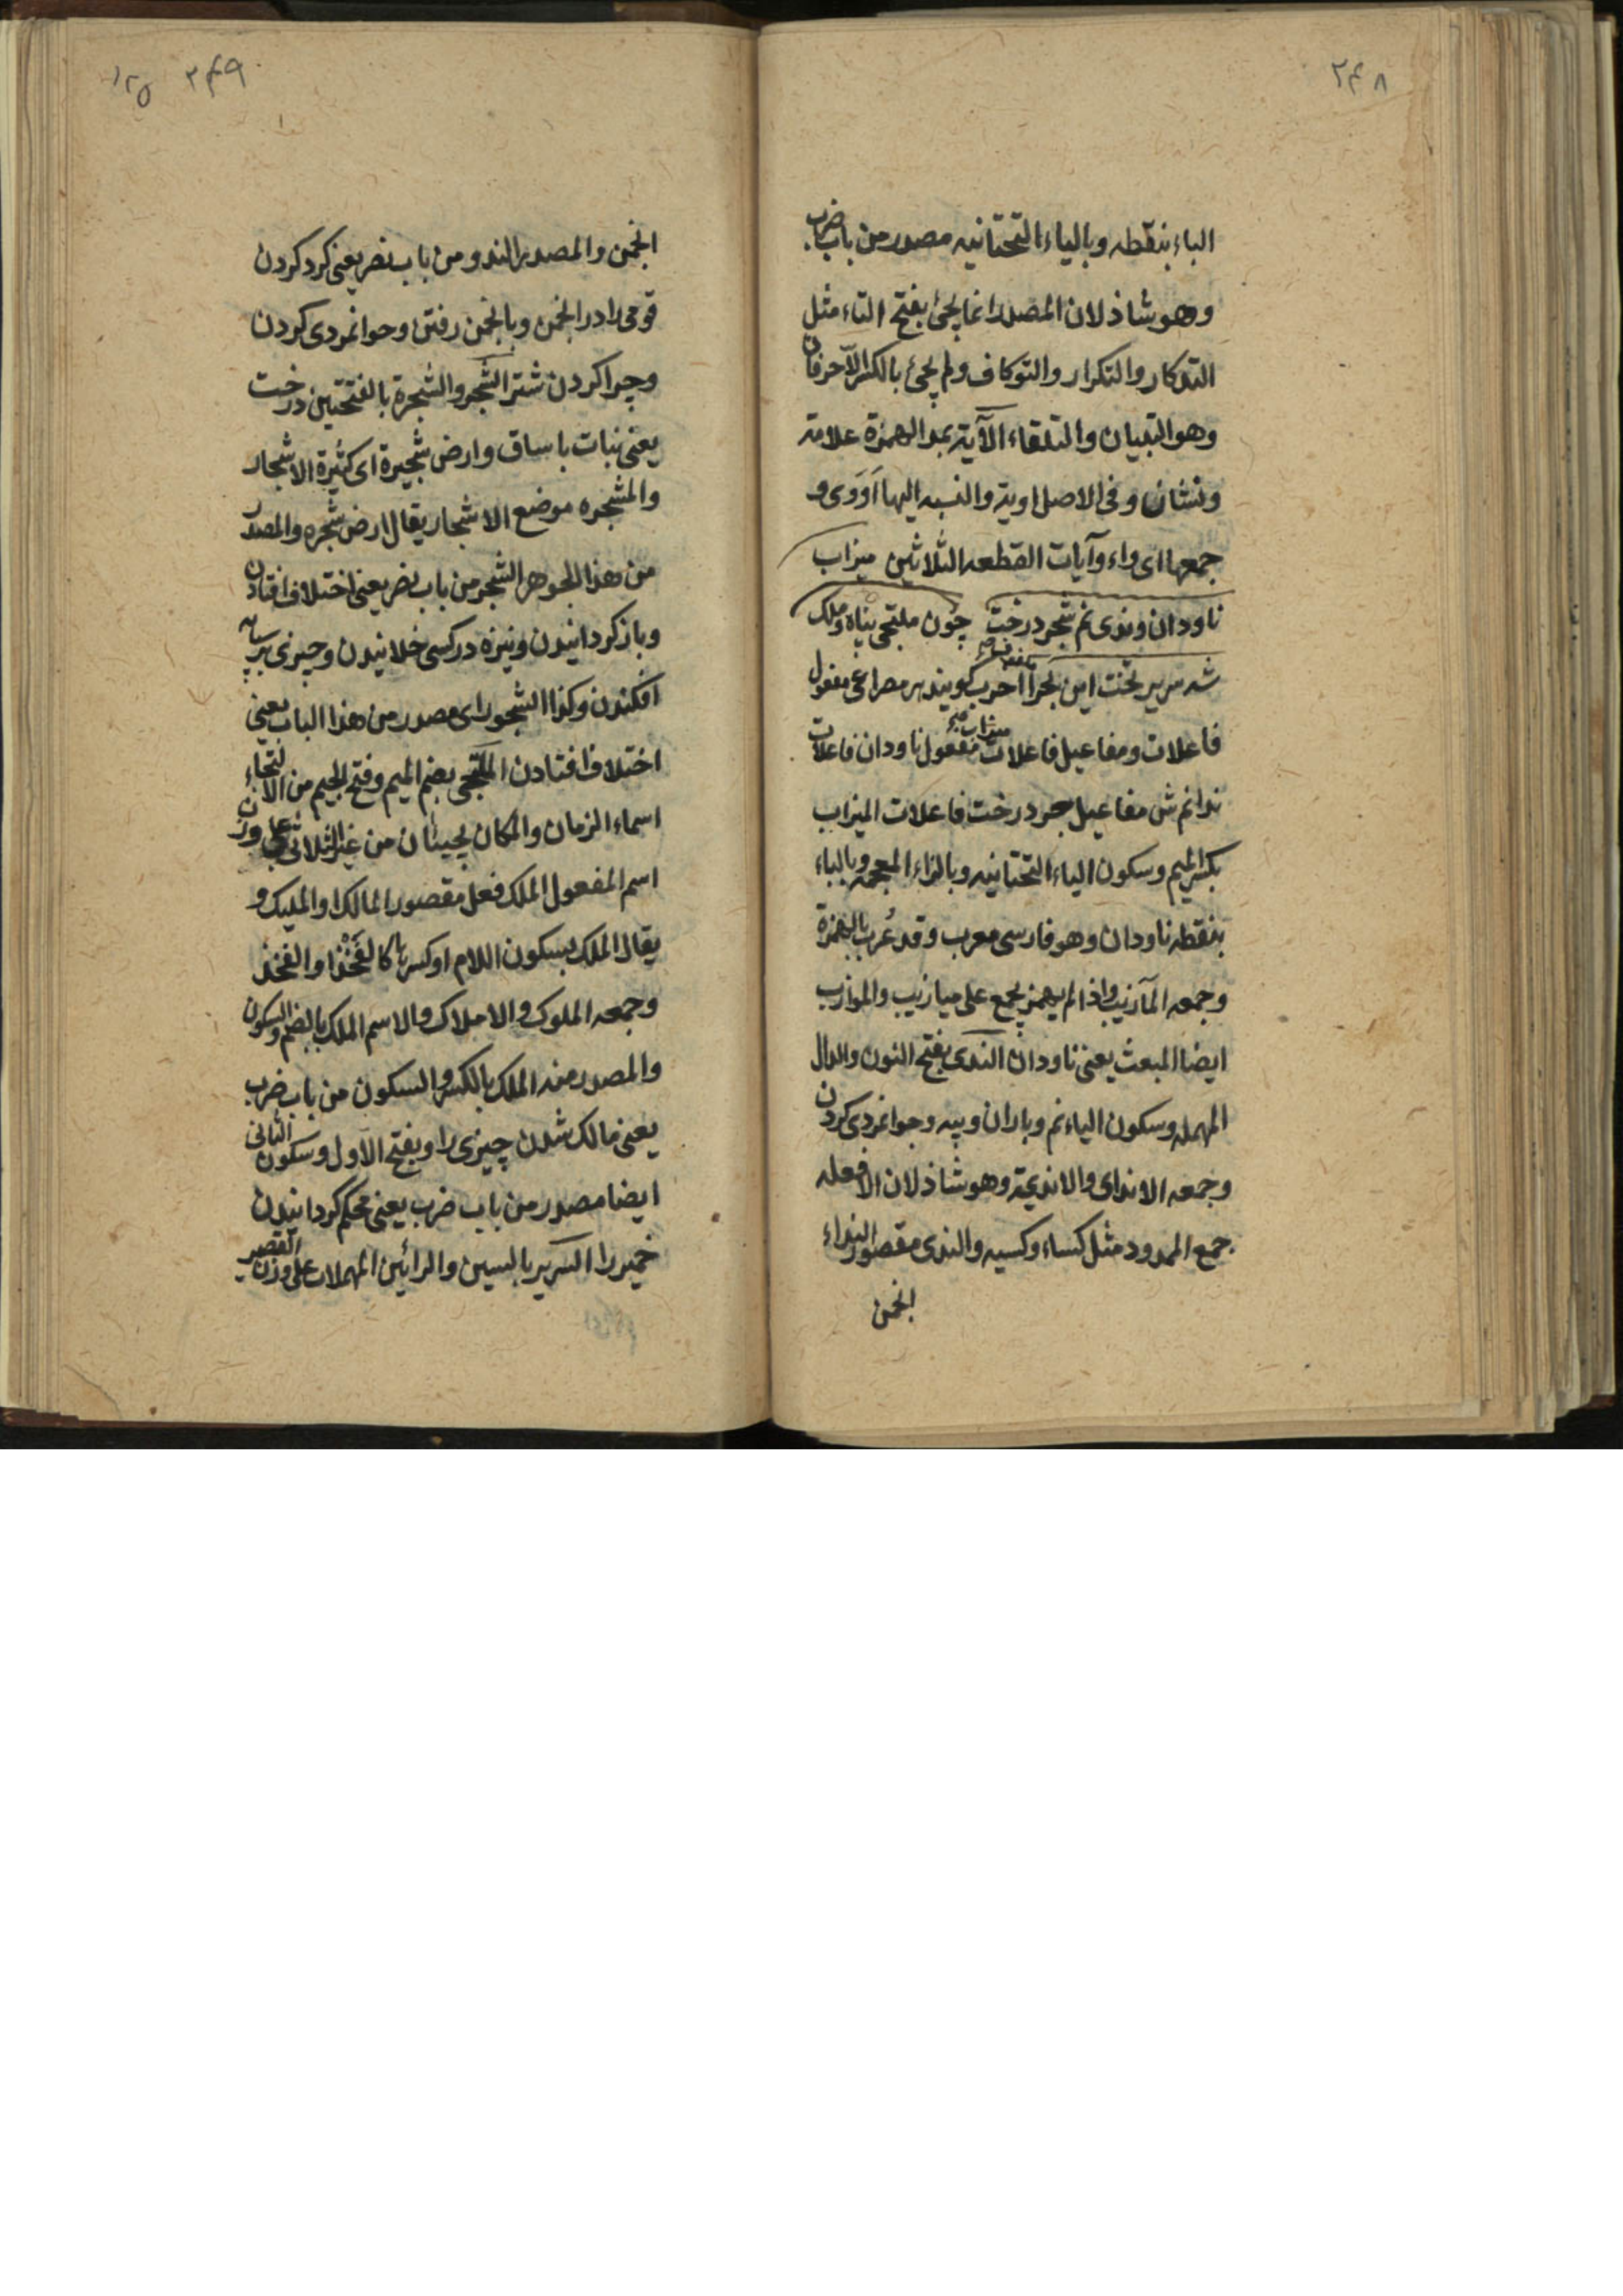 ۲۴۸
الباء بنقطه وبالیاء التحتانیه مصدر من باب ضرب
وهو شاذ لان المصدر انما یجئ بفتح التاء مثل
التذکار والتکرار والتوکاف ولم یجئ بالکسر الّا حرفان
وهو التبیان والتلقاء الآیة بمد الهمزة علامة
ونشان وفی الاصل اویة والنسبه الیها اَوَوی و
جمعها ای واء وآیات القطعه الثلاثین میزاب
ناودان وندی نم شجر درخت چون ملتجی پناه وملک
شه سریر تخت این بحر را اخرب گویند هر مصراعی مفعول
فاعلات ومفاعیل فاعلات مفعول ناودان فاعلات
ندانم ش مفاعیل جر درخت فاعلات المیزاب
بکسر المیم وسکون الیاء التحتانیه وبالزاء المعجمه وبالباء
بنقطه ناودان وهو فارسی معرب وقد عُرب بالهمزة
وجمعه المآزیب واذا لم یهمز یجمع علی میازیب والموازیب
ایضا المبعث یعنی ناودان الندی بفتح النون والدال
المهمله وسکون الیاء نم وباران وپیه وجوانمردی کردن
وجمعه الاندای والاندیة وهو شاذ لان الافعله
جمع الممدود مثل کساء وکسیه والندی مقصور النداء
انجمن
۲۴۹ ۱۲۵
انجمن والمصدر الندو من باب نصر یعنی کرد کردن
قومی را در انجمن وبانجمن رفتن وحوانمردی کردن
وچرا کردن شتر الشجر والشجرة بالفتحتین درخت
یعنی نبات با ساق وارض شجیرة ای کثیرة الاشجار
والمشجره موضع الاشجار یقال ارض شجره والمصدر
من هذا الجوهر الشجر من باب نصر یعنی اختلاف افتادن
وباز کردانیدن ونیزه در کسی خلانیدن وچیزی بر سپایه
افکندن وکذا الشجور ای مصدر من هذا الباب یعنی
اختلاف افتادن الملتجی بضم المیم وفتح الجیم من الالتجاء
اسماء الزمان والمکان یجیئان من غیر الثلاثی علی وزن
اسم المفعول الملک فعل مقصور المالک او الملیک و
یقال الملک بسکون اللام او کسرها کالفَخْذ او الفخذ
وجمعه الملوک والاملاک والاسم الملک بالضم والسکون
والمصدر منه الملک بالکسر والسکون من باب ضرب
یعنی مالک شدن چیزی را وبفتح الاول وسکون الثانی
ایضا مصدر من باب ضرب یعنی محکم کردانیدن
خمیر را السریر بالسین والرائین المهملات علی وزن القصیر